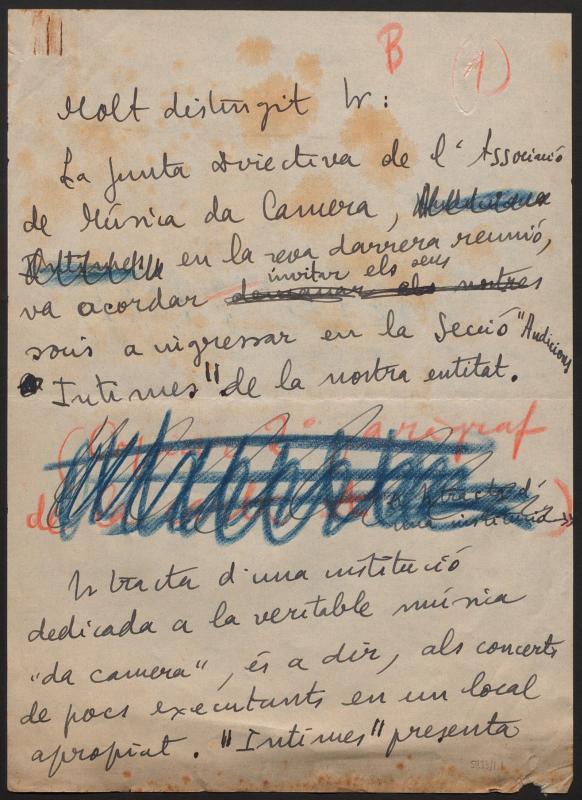 B 1
Molt distingit Sr:
La Junta Directiva de l'Associació
de Música da Camera,
en la seva darrera reunió,
invitar els seus
va acordar demanar als nostres
socis a ingressar en la Secció "Audicions
Intimes" de la nostra entitat.
(Copiar 2º paràgraf
de la
es tracta d'
una institució
Es tracta d'una institució
dedicada a la veritable música
"da camera", és a dir, als concerts
de pocs executants en un local
apropiat. "Intimes" presenta